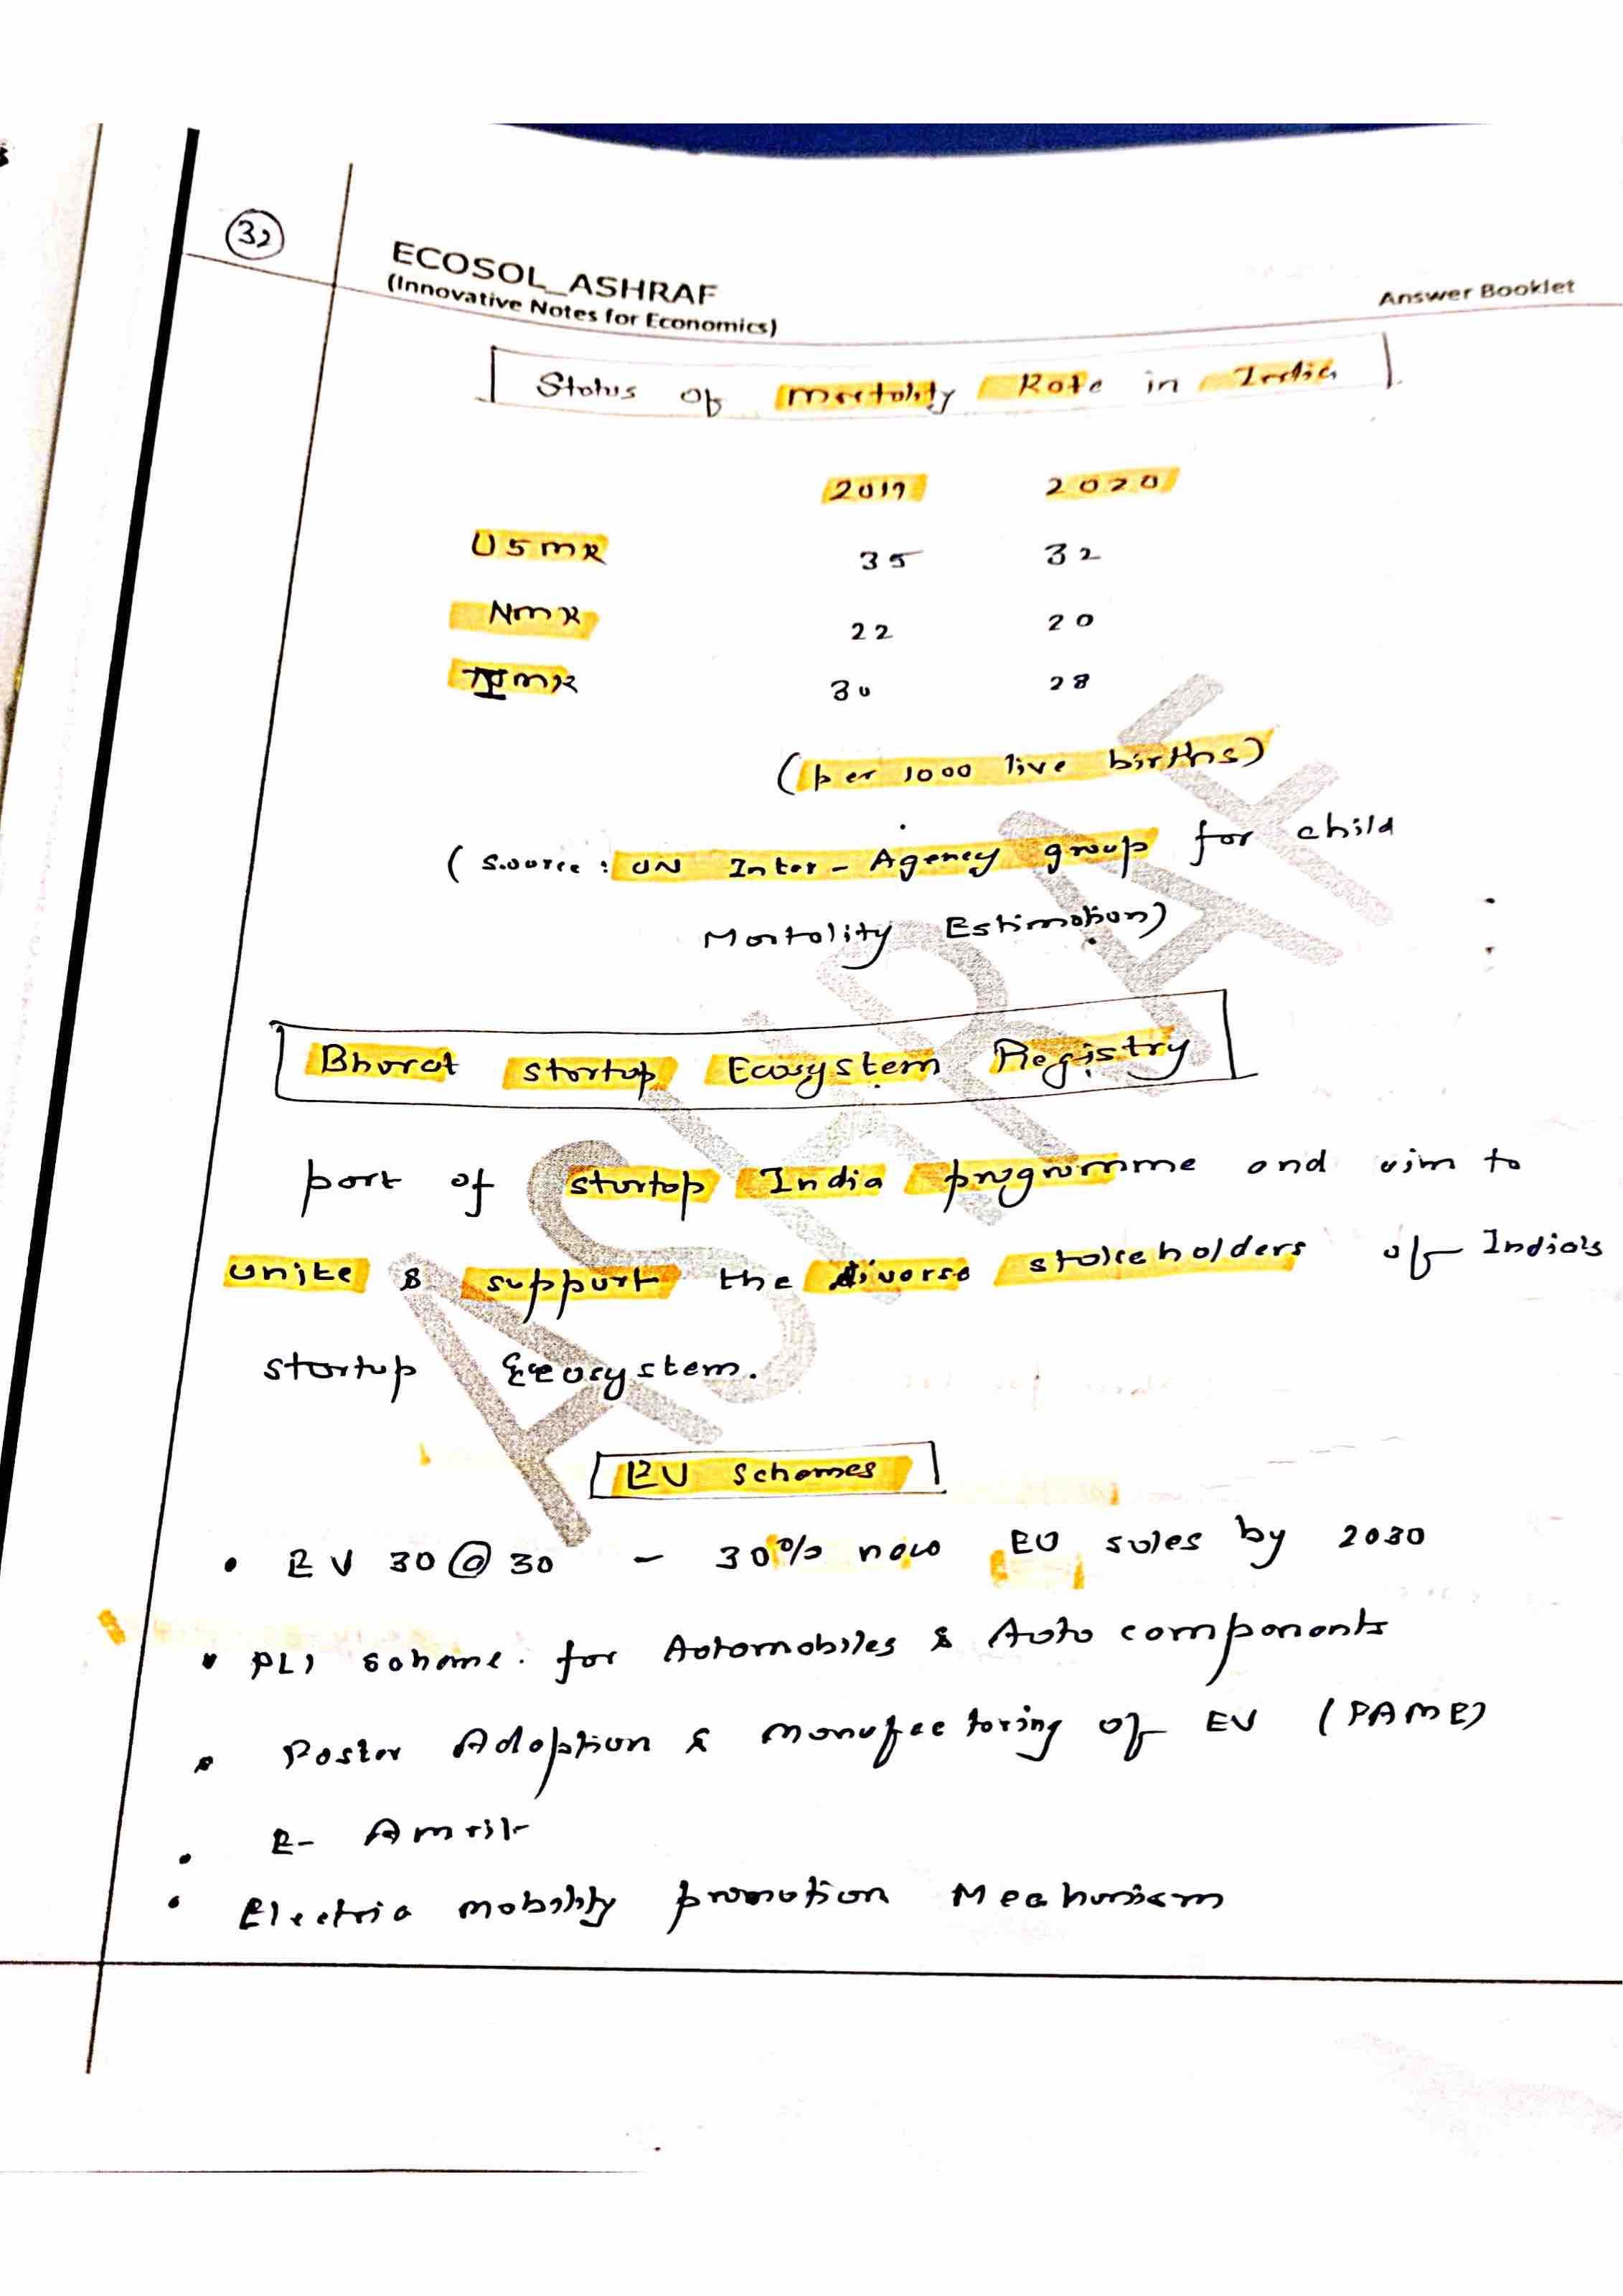 32
ECOSOL_ASHRAF
(Innovative Notes for Economics)
Answer Booklet
Status of Mortality Rate in India
2019 2020
U5MR 35 32
NMR 22 20
IMR 30 28
(per 1000 live births)
(source: UN Inter-Agency group for child
Mortality Estimation)
Bharat startup Ecosystem Registry
part of startup India programme and aim to
unite & support the diverse stakeholders of India's
startup Ecosystem.
EV Schemes
• EV 30@30 – 30% new EV sales by 2030
• PLI scheme for Automobiles & Auto components
• Faster Adoption & Manufacturing of EV (FAME)
• E- Amrit
• Electric mobility promotion Mechanism
ASHRAF